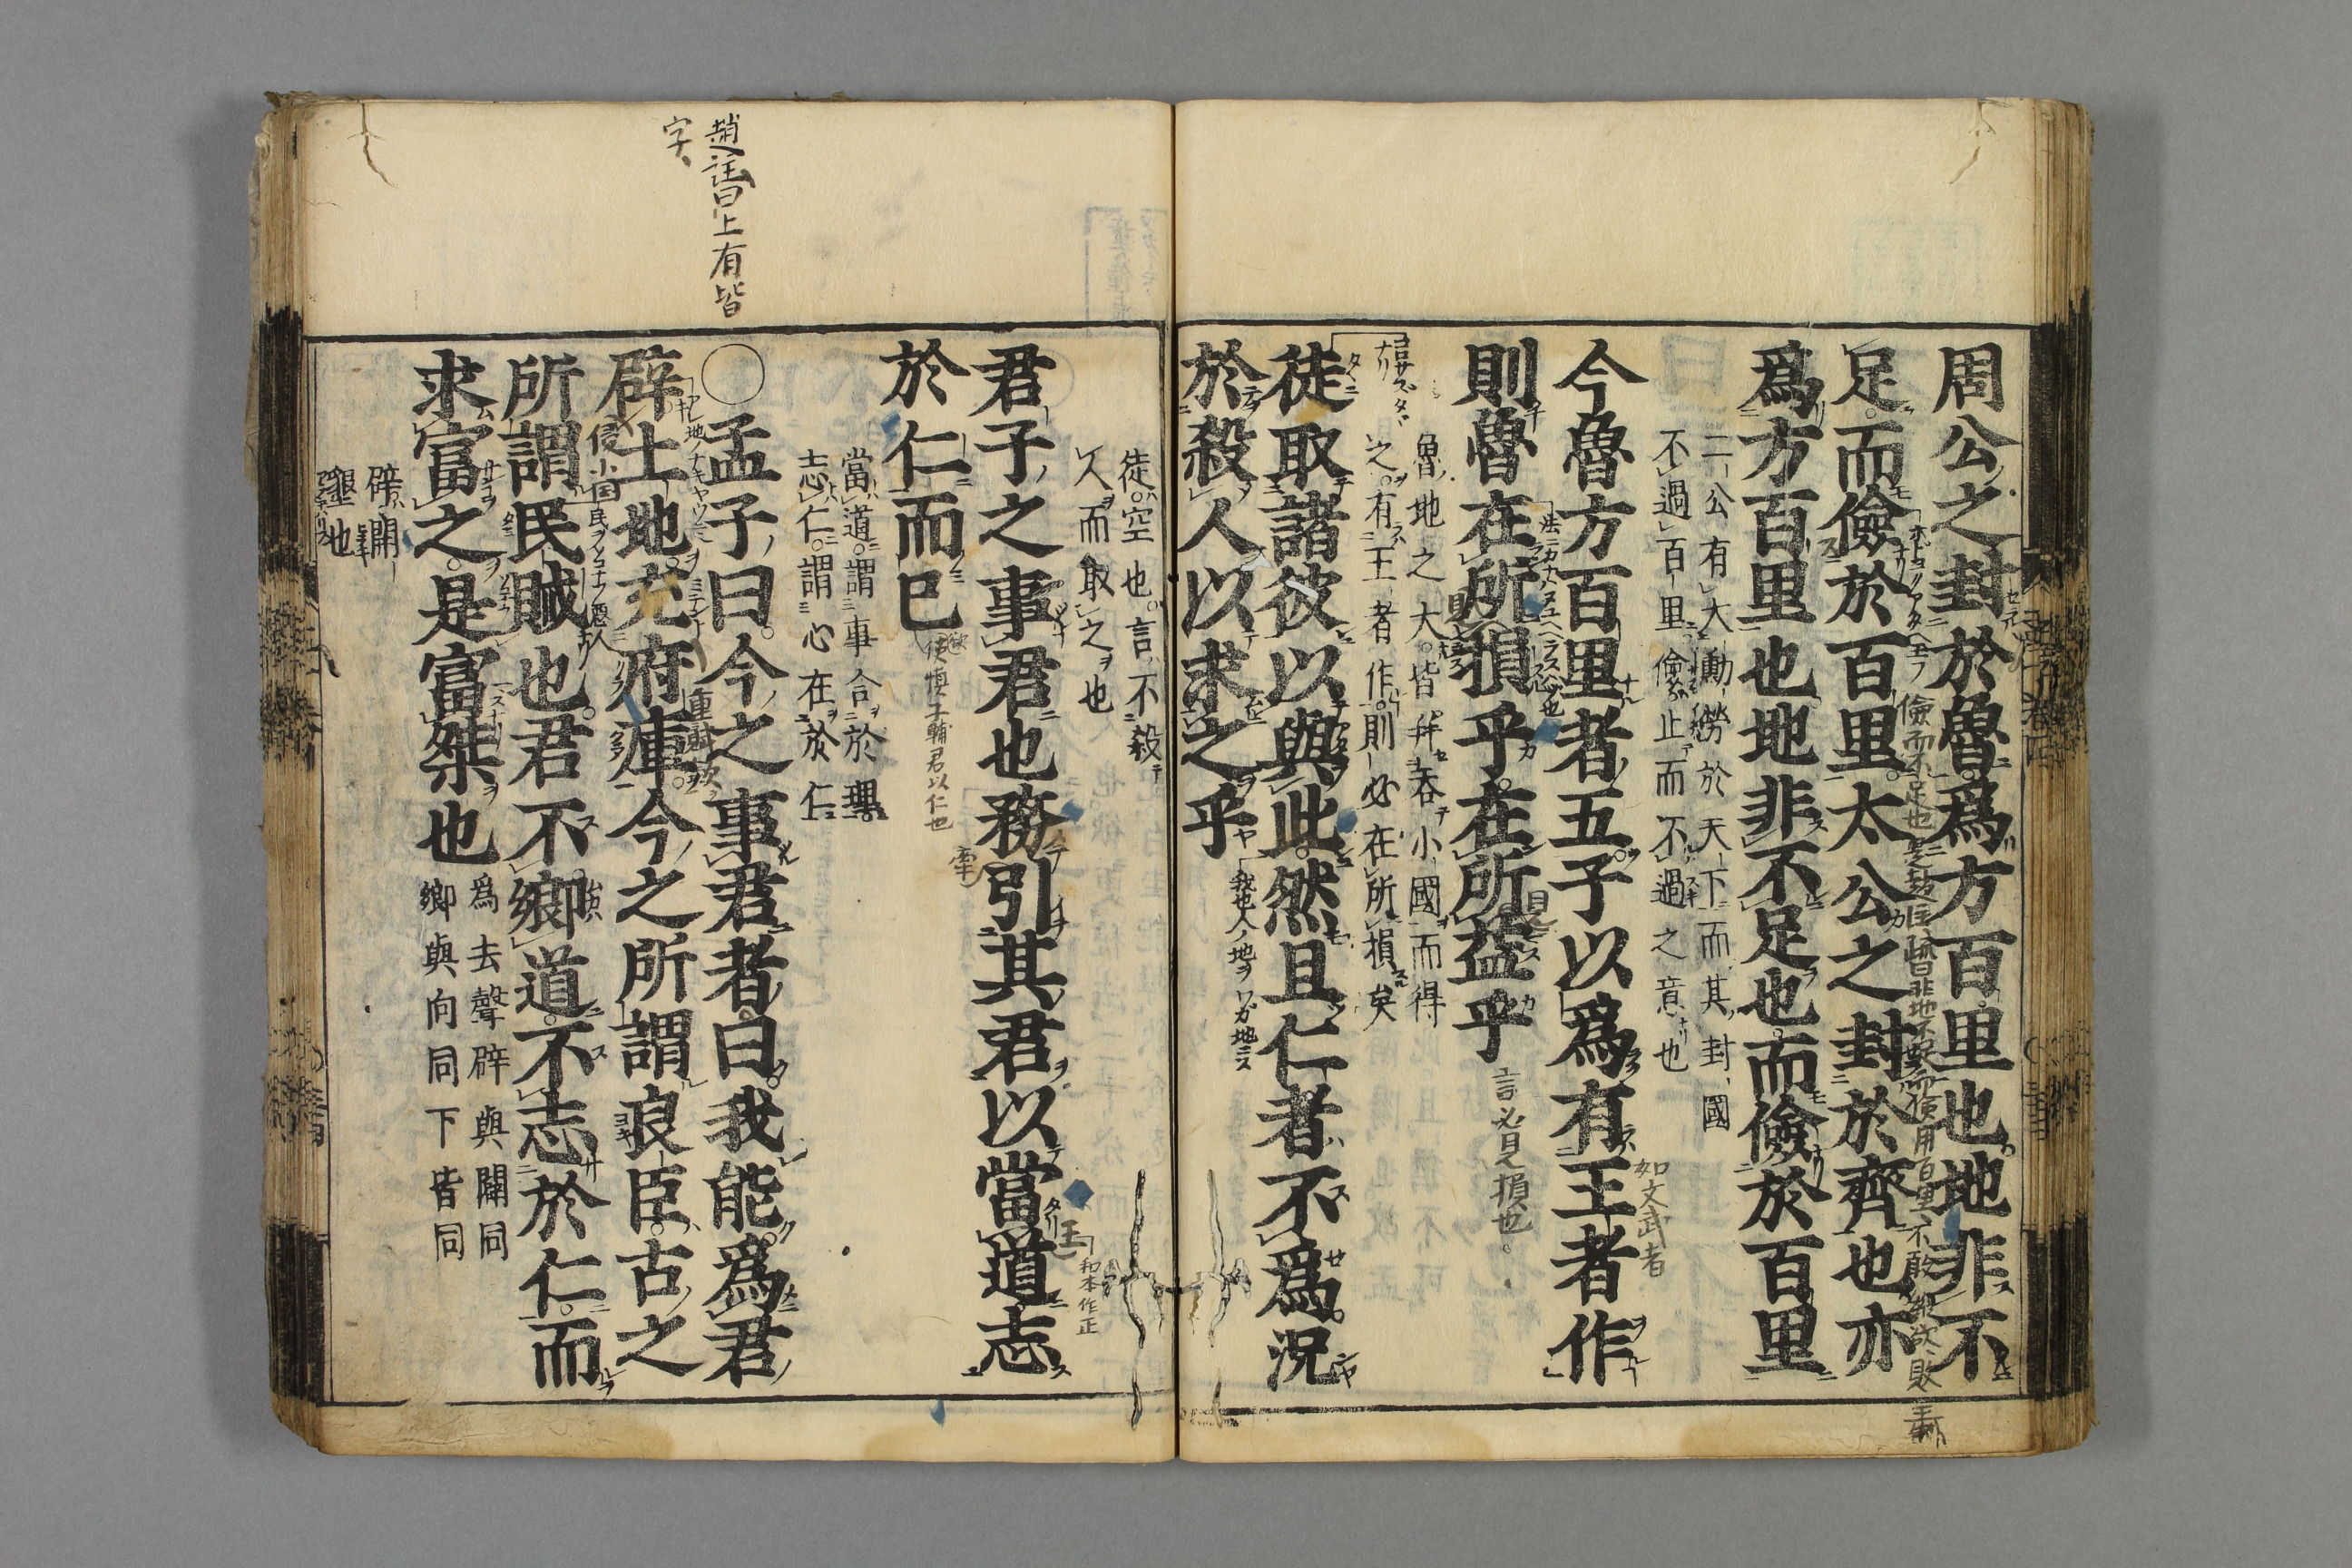 周公之封於魯爲方百里也地非不
足而儉於百里太公之封於齊也亦
爲方百里也地非不足也而儉於百里
二公有大勳勞於天下而其封國
不過百里儉止而不過之意也
今魯方百里者五子以爲有王者作
如文武者
則魯在所損乎在所益乎
言必見損也
魯地之大皆幷吞小國而得
之有王者作則必在所損矣
徒取諸彼以與此然且仁者不爲況
於殺人以求之乎
徒空也言不殺
人而取之也
君子之事君也務引其君以當道志
和本作正
於仁而已
當道謂事合於理
志仁謂心在於仁
趙註曰上有皆
字
〇孟子曰今之事君者曰我能爲君
辟土地充府庫今之所謂良臣古之
所謂民賊也君不鄕道不志於仁而
求富之是富桀也
爲去聲辟與闢同
鄕與向同下皆同
辟開
墾也